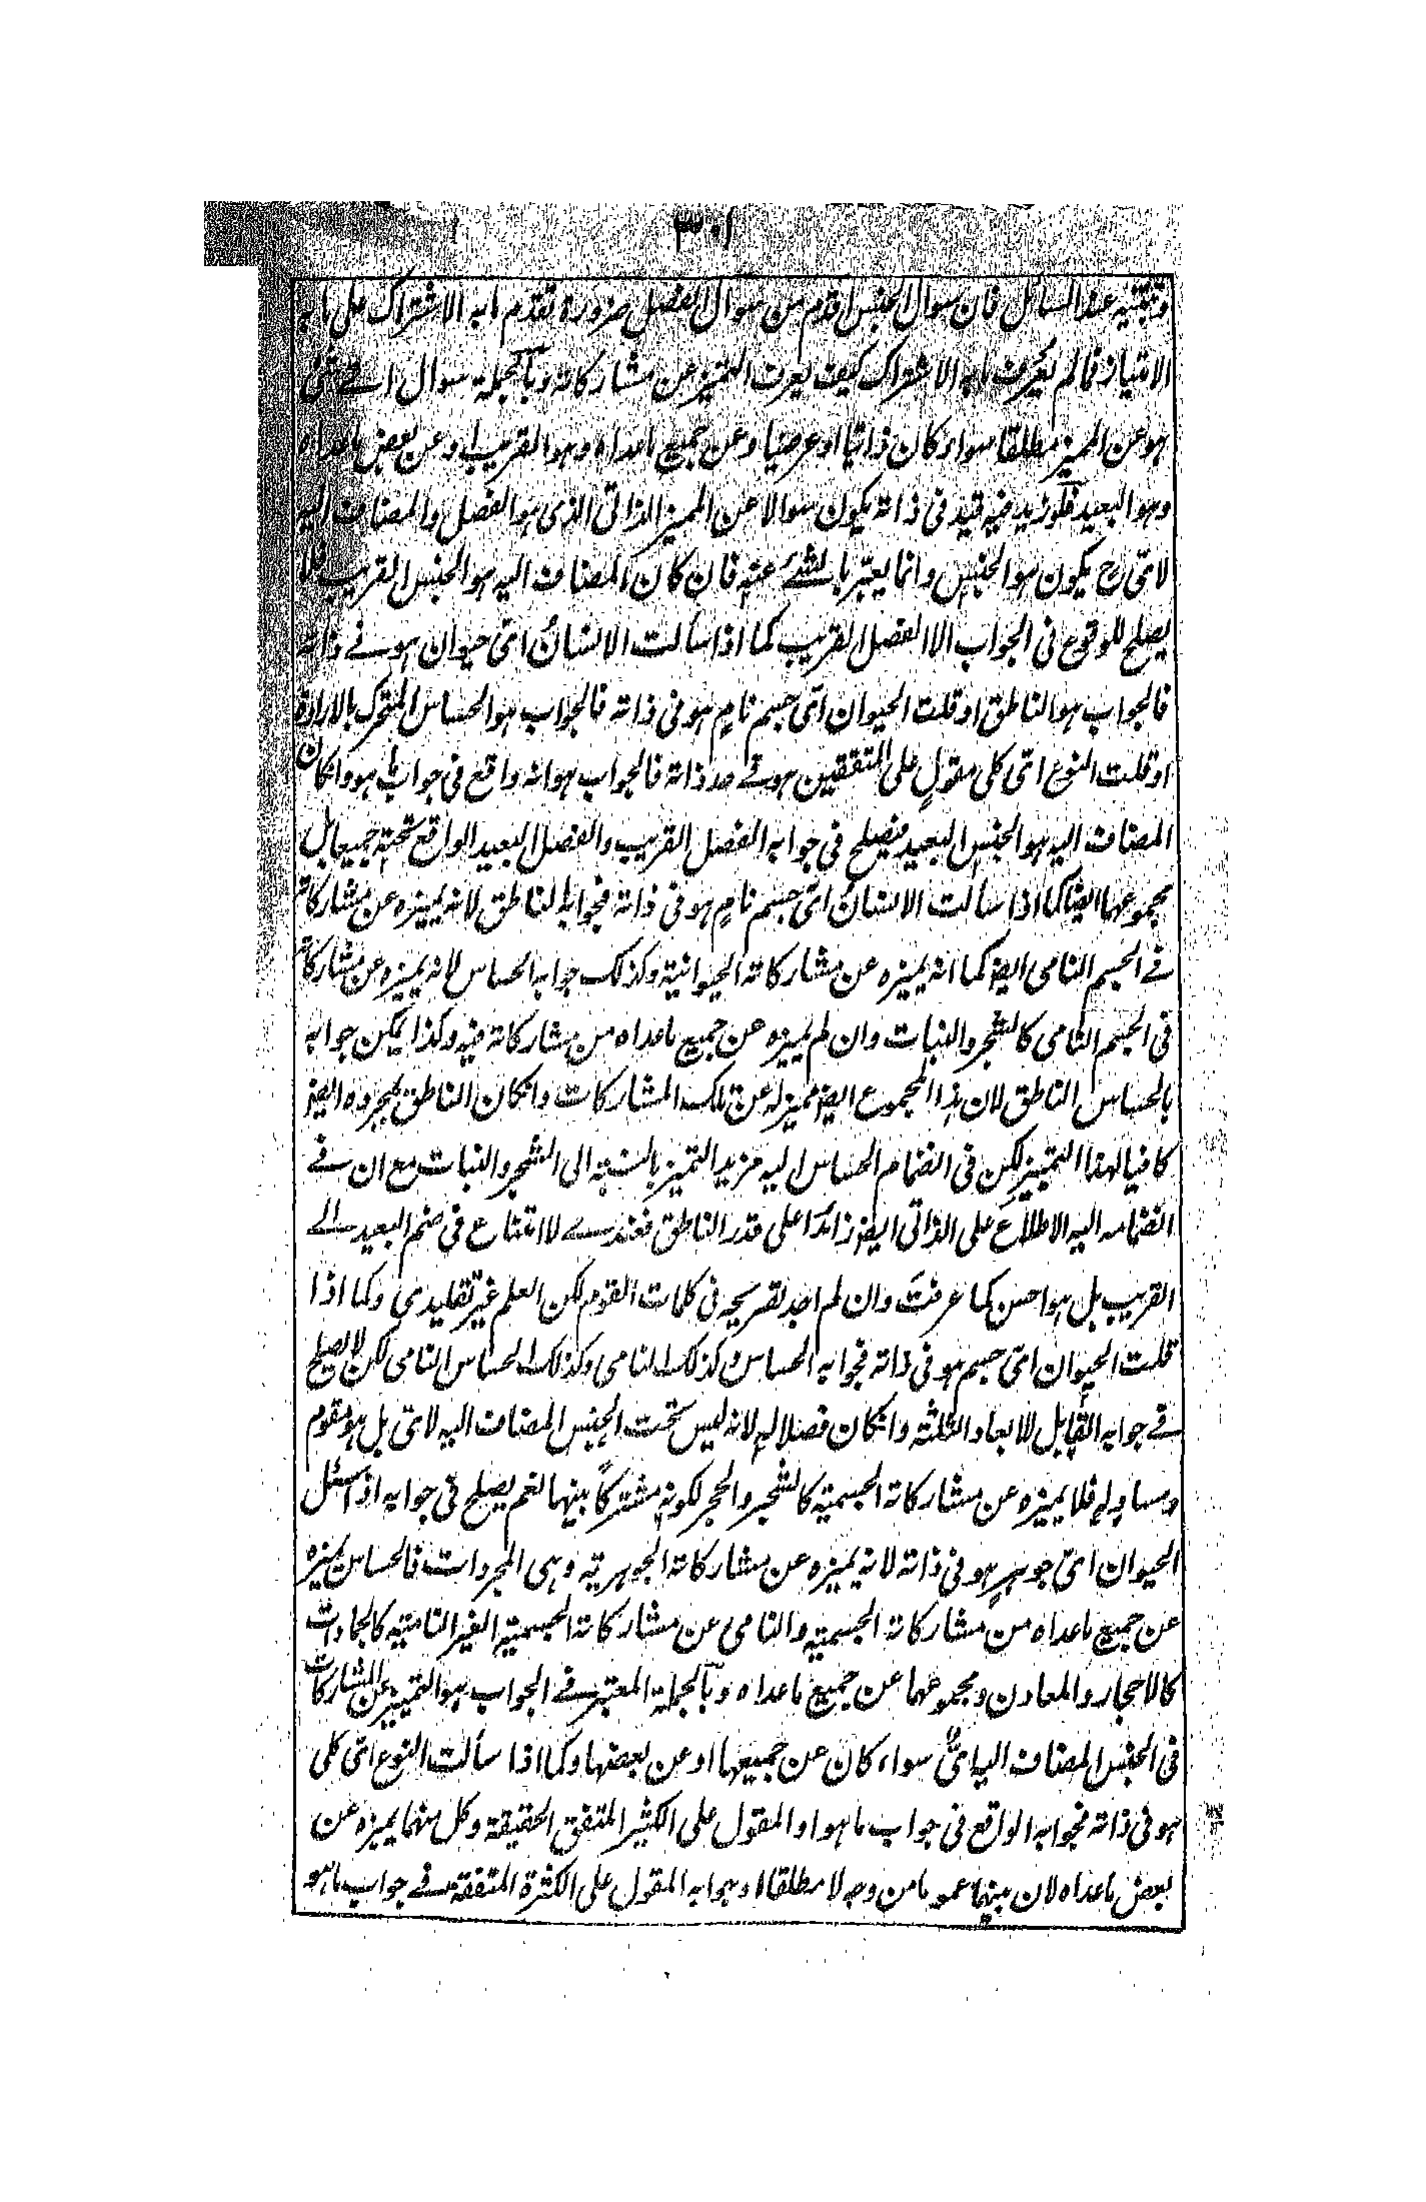 ٣٠١
وتيقنه عند السائل فان سوال الجنس اقدم من سوال الفصل ضرورة تقدم ما به الاشتراك على ما به
الامتياز فمالم يعرف ما به الاشتراك كيف يعرف التميز عن مشاركاته وبالجملة سوال اي شئ
هو عن المميز مطلقا سواء كان ذاتيا او عرضيا وعن جميع ما عداه وهو القريب او عن بعض ما عداه
وهو البعيد فلو زيد فيه قيد في ذاته يكون سوالا عن المميز الذاتي الذي هو الفصل والمضاف اليه
لاي ح يكون هو الجنس وانما يعبر بالشئ عنه فان كان المضاف اليه هو الجنس القريب فلا
يصلح للوقوع في الجواب الا الفصل القريب كما اذا سألت الانسان اي حيوان هو في ذاته
فالجواب هو الناطق او قلت الحيوان اي جسم نام هو في ذاته فالجواب هو الحساس المتحرك بالارادة
او قلت النوع اي كلي مقول على المتفقين هو في حد ذاته فالجواب هو انه واقع في جواب ما هو وانكان
المضاف اليه هو الجنس البعيد فيصلح في جوابه الفصل القريب والفصل البعيد الواقع تحته جميعا بل
مجموعهما ايضا كما اذا سألت الانسان اي جسم نام هو في ذاته فجوابه الناطق لانه يميزه عن مشاركاته
في الجسم النامي ايض كما انه يميزه عن مشاركاته الحيوانية وكذلك جوابه الحساس لانه يميزه عن مشاركاته
في الجسم النامي كالشجر والنبات وان لم يميزه عن جميع ما عداه من مشاركاته فيه وكذا يمكن جوابه
بالحساس الناطق لان هذا المجموع ايض مميز له عن تلك المشاركات وانكان الناطق بمجرده ايض
كافيا لهذا التمييز لكن في انضمام الحساس اليه مزيد التميز بالنسبة الى الشجر والنبات مع ان في
انضمامه اليه الاطلاع على الذاتي ايض زائدا على قدر الناطق فعندي لا امتناع في ضم البعيد الى
القريب بل هو احسن كما عرفت وان لم اجد تصريحه في كلمات القوم لكن العلم غير تقليدي وكما اذا
قلت الحيوان اي جسم هو في ذاته فجوابه الحساس وكذلك النامي وكذلك الحساس النامي لكن لا يصلح
في جوابه القابل للابعاد الثلثة وانكان فصلا له لانه ليس تحت الجنس المضاف اليه لاي بل هو مقوم
ومساو له فلا يميزه عن مشاركاته الجسمية كالشجر والحجر لكونه مشتركا بينهما نعم يصلح في جوابه اذا سئل
الحيوان اي جوهر هو في ذاته لانه يميزه عن مشاركاته الجوهرية وهي المجردات فالحساس يميزه
عن جميع ما عداه من مشاركاته الجسمية والنامي عن مشاركاته الجسمية الغير النامية كالجمادات
كالاحجار والمعادن ومجموعهما عن جميع ما عداه وبالجملة المعتبر في الجواب هو التمييز عن المشاركات
في الجنس المضاف اليه اي سواء كان عن جميعها او عن بعضها وكما اذا سألت النوع اي كلي
هو في ذاته فجوابه الواقع في جواب ما هو او المقول على الكثير المتفق الحقيقة وكل منهما يميزه عن
بعض ما عداه لان بينهما عموما من وجه لا مطلقا او جوابه المقول على الكثرة المتفقة في جواب ما هو